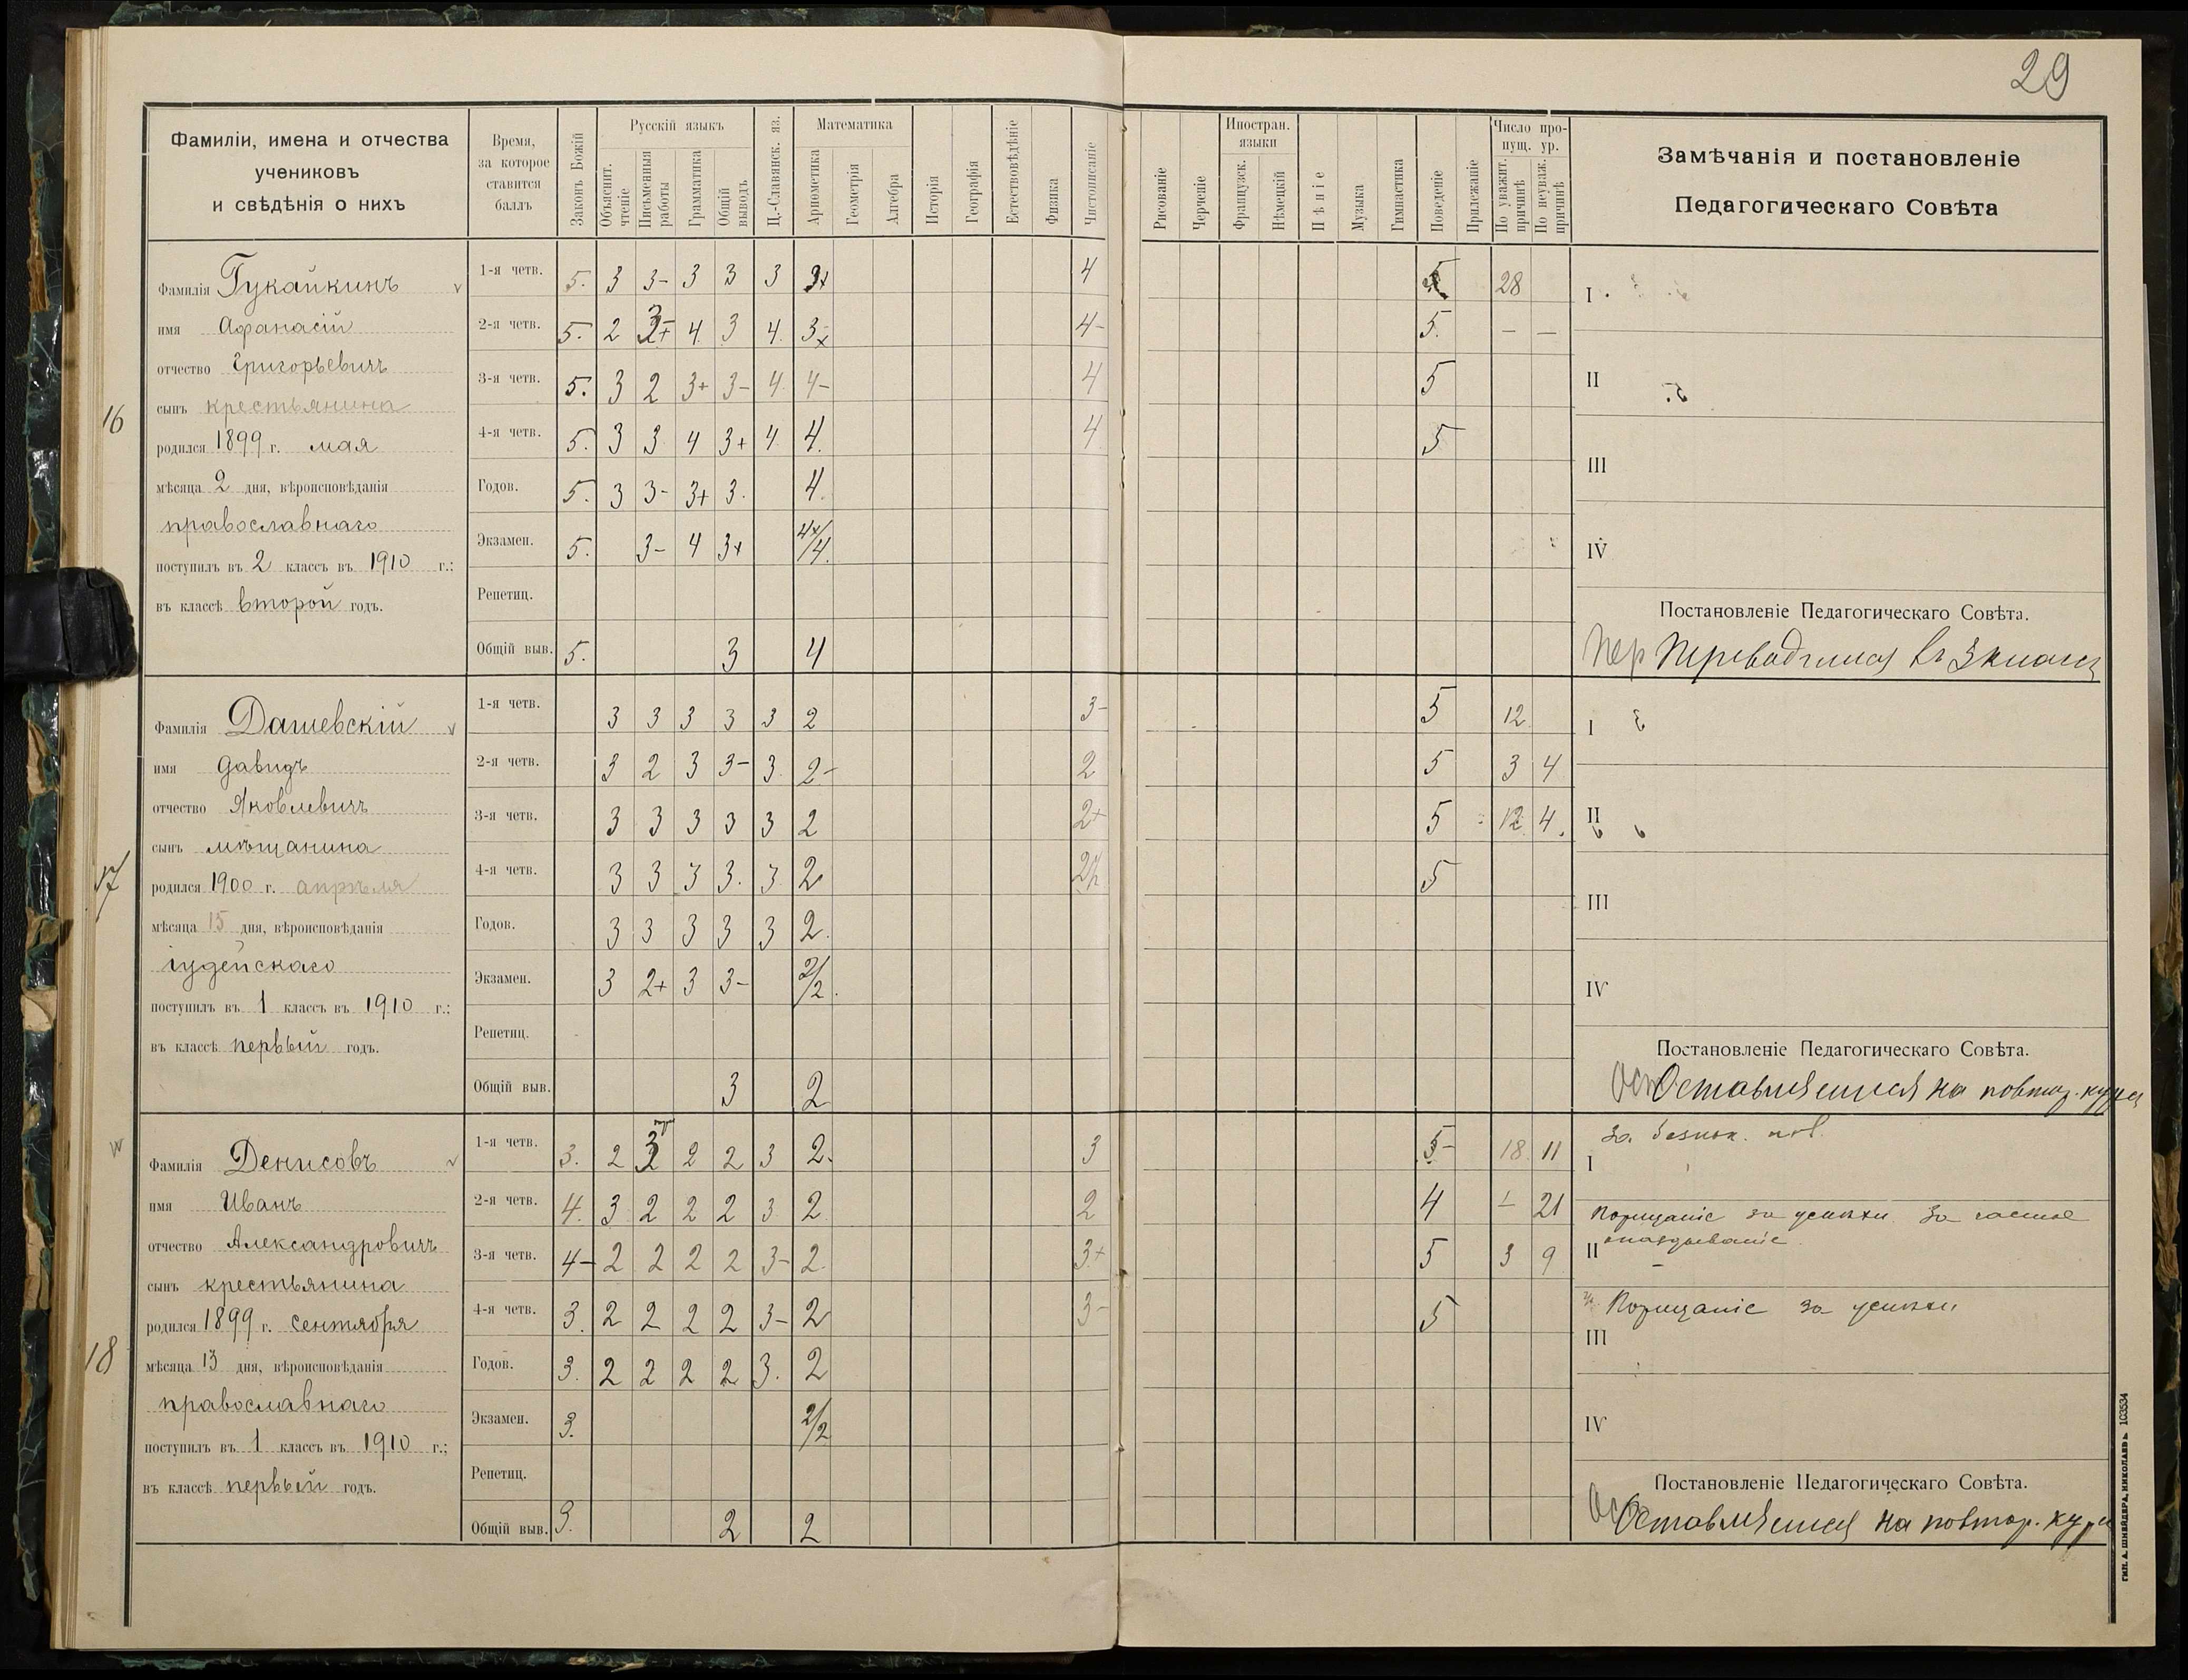 29
Фамиліи, имена и отчества
учениковъ
и свѣдѣнія о нихъ
Время,
за которое
ставится
баллъ
Законъ Божій
Русскій языкъ
Объяснит. чтеніе
Письменныя работы
Грамматика
Общій выводъ
Ц.-Славянск. яз.
Математика
Арифметика
Геометрія
Алгебра
Исторія
Географія
Естествовѣдѣніе
Физика
Чистописаніе
Рисованіе
Черченіе
Иностран. языки
Французск.
Нѣмецкій
Пѣніе
Музыка
Гимнастика
Поведеніе
Прилежаніе
Число про-
пущ. ур.
По уважит. причинѣ
По неуваж. причинѣ
Замѣчанія и постановленіе
Педагогическаго Совѣта
16
Фамилія Гукайкинъ
имя Афанасій
отчество Григорьевичъ
сынъ крестьянина
родился 1899 г. мая
мѣсяца 2 дня, вѣроисповѣданія
православнаго
поступилъ въ 2 классъ въ 1910 г.:
въ классѣ второй годъ.
1-я четв. 5. 3 3- 3 3 3 3+ 4 28
2-я четв. 5. 2 4 3 4. 4- 5. — —
3-я четв. 5. 3 2 3+ 3- 4 4- 4 5
4-я четв. 5. 3 3 4 3+ 4 4. 4 5
Годов. 5. 3 3- 3+ 3. 4.
Экзамен. 5. 3- 4 3+ 4+/4.
Репетиц.
Общій выв. 5. 3 4
I
II
III
IV
Постановленіе Педагогическаго Совѣта.
Пер Переводится въ 3 классъ
17
Фамилія Дашевскій
имя Давидъ
отчество Яковлевичъ
сынъ мѣщанина
родился 1900 г. апрѣля
мѣсяца 15 дня, вѣроисповѣданія
іудейскаго
поступилъ въ 1 классъ въ 1910 г.;
въ классѣ первый годъ.
1-я четв. 3 3 3 3 3 2 3- 5 12
2-я четв. 3 2 3 3- 3. 2- 2 5 3 4
3-я четв. 3 3 3 3 3 2 2+ 5 12 4
4-я четв. 3 3 3 3. 3 2 5
Годов. 3 3 3 3 3 2.
Экзамен. 3 2+ 3 3- 2/2
Репетиц.
Общій выв. 3 2
I
II
III
IV
Постановленіе Педагогическаго Совѣта.
Ост Оставляется на повтор. курсъ
18
Фамилія Денисовъ
имя Иванъ
отчество Александровичъ
сынъ крестьянина
родился 1899 г. сентября
мѣсяца 13 дня, вѣроисповѣданія
православнаго
поступилъ въ 1 классъ въ 1910 г.;
въ классѣ первый годъ.
1-я четв. 3. 2 2 2 3 2. 3 5- 18 11
2-я четв. 4. 3 2 2 2 3 2 2 4 21
3-я четв. 4- 2 2 2 2 3- 2. 3+ 5 3 9
4-я четв. 3. 2 2 2 2 3- 2 3- 5
Годов. 3. 2 2 2 2 3. 2
Экзамен. 3. 2/2
Репетиц.
Общій выв. 3. 2 2
I
Порицаніе за успѣхи За частое
II опаздываніе
Порицаніе за успѣхи
III
IV
Постановленіе Педагогическаго Совѣта.
Ос Оставляется на повтор. курсъ
ТИП. А. ШНЕЙДЕРА, НИКОЛАЕВЪ 103534